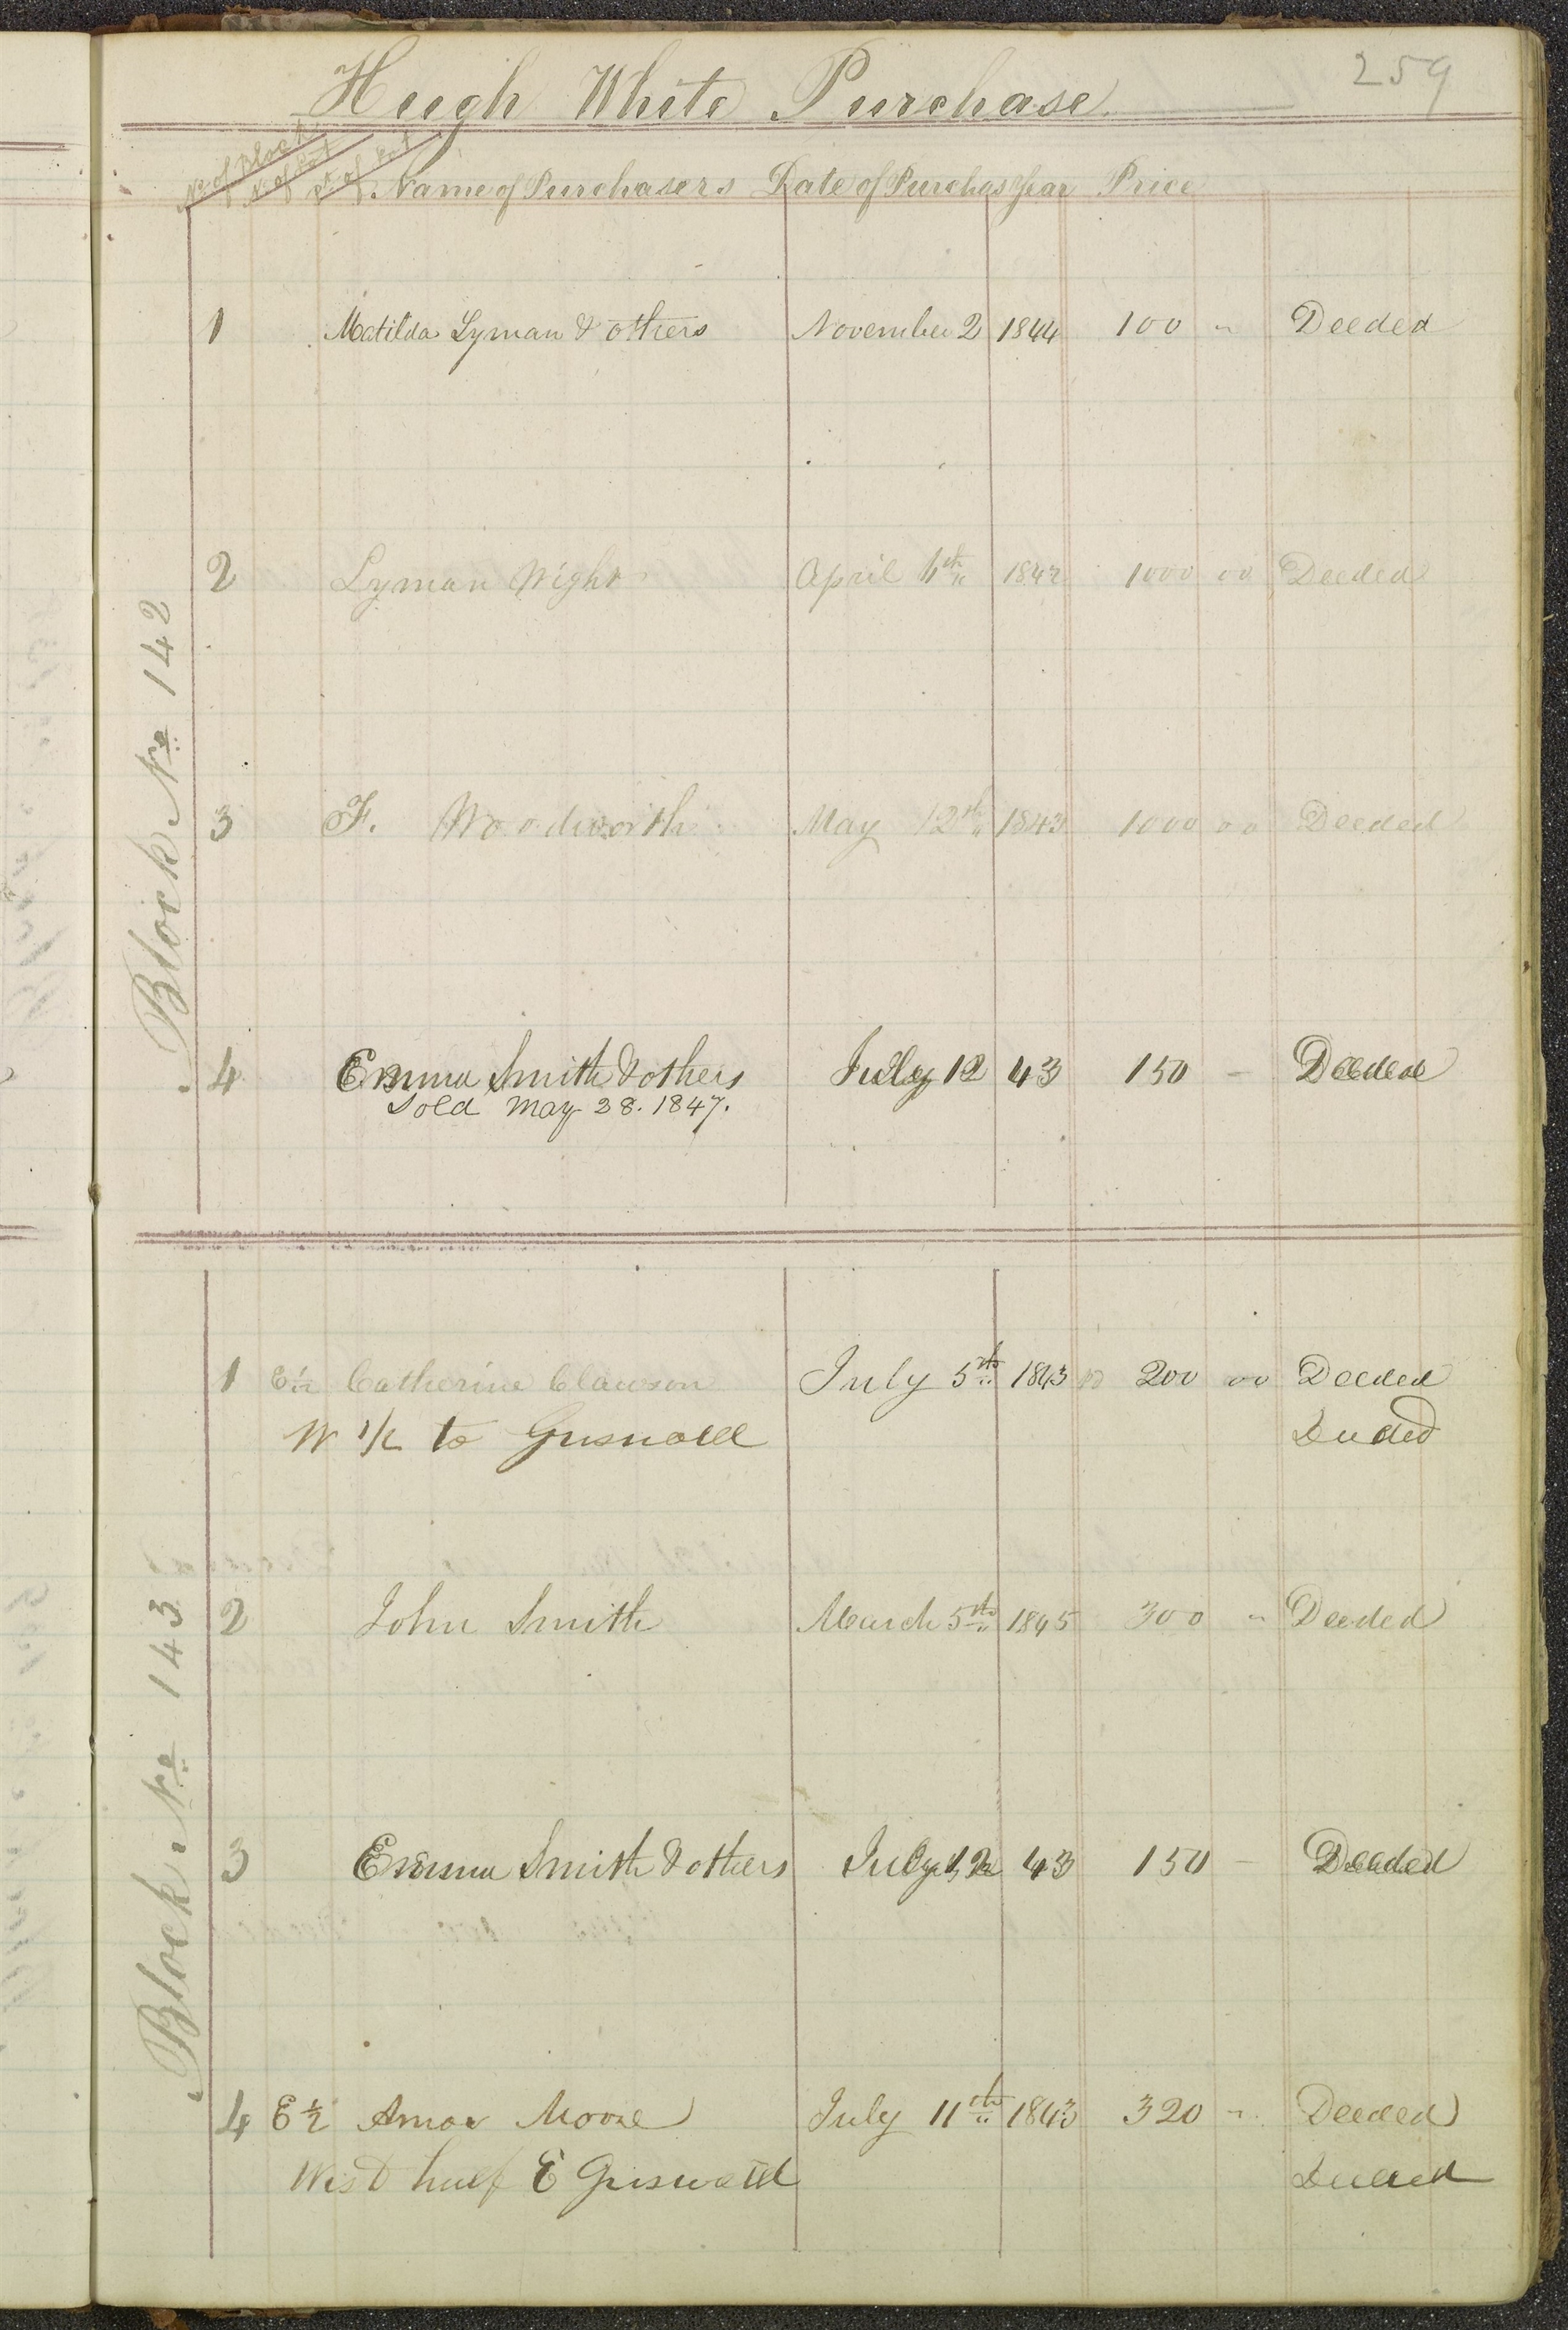 259
Hugh White Purchase.
No of Block No of Lot Pt of Lot Name of Purchasers Date of Purchas Year Price
Block No 142
1 Matilda Lyman & others November 2 1844 100 " Deeded
2 Lyman Wight April 1842 1000 00 Deeded
3 F. Woodworth May 12th 1843 1000 00 Deeded
4 Emma Smith & others July 12 43 150 - Deeded
Sold May 28. 1847.
Block No 143
1 E ½ Catherine Clawson July 5th 1843 200 00 Deeded
W 1/2 to Deeded
2 John Smith March 5th 1845 300 " Deeded
3 Emma Smith & others July 12 43 150 - Deeded
4 E ½ Amos Moore July 11th 1843 320 " Deeded
West half E Griswold Deeded